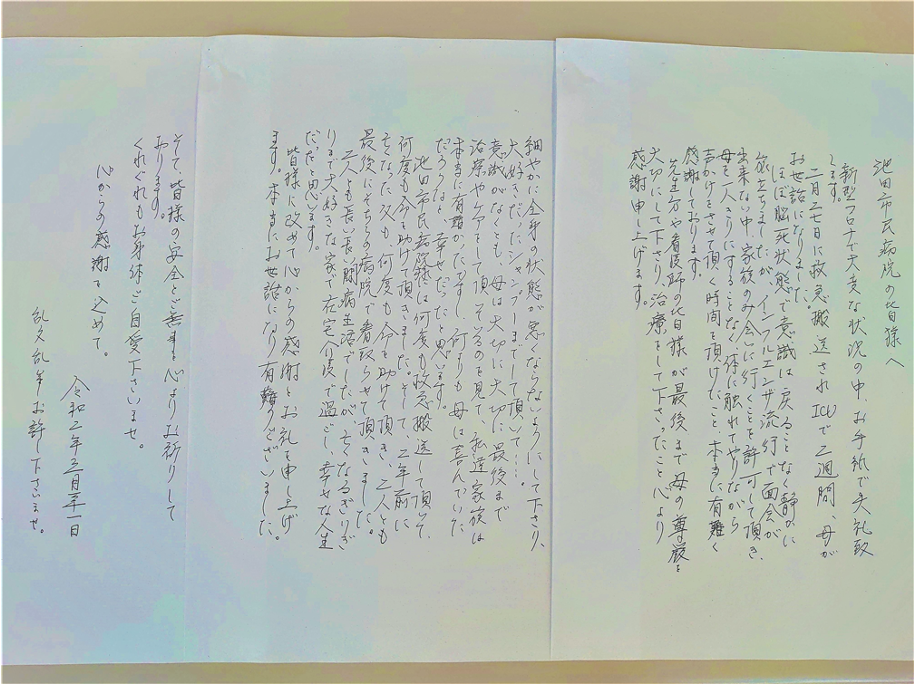 池田市民病院の皆様へ
新型コロナで大変な状況の中、お手紙で失礼致
します。
二月二七日に救急搬送されICUで2週間、母が
お世話になりました。
ほぼ脳死状態で意識は戻ることなく静かに
旅立ちましたが、インフルエンザ流行で面会が
出来ない中、家族のみ会いに行くことを許可して頂き、
母を一人きりにすることなく体に触れてやりながら
声かけをさせて頂く時間を頂けたこと、本当に有難く
感謝しております。
先生方や看護師の皆様が最後まで母の尊厳を
大切にして下さり、治療をして下さったこと、心より
感謝申し上げます。
細やかに全身の状態が悪くならないようにして下さり、
大好きだったシャンプーまでして頂いて…
意識がなくても、母は大切に大切に最後まで
治療やケアをして頂いているのを見て、私達家族は
本当に有難かったですし、何よりも母は喜んでいた
だろうなと、幸せだったと思います。
池田市民病院様には何度も救急搬送して頂いて、
何度も命を助けて頂きました。そして、二年前に
亡くなった父も、何度も命を助けて頂き、二人とも
最後にそちらの病院で看取らせて頂きました。
二人とも長い長い闘病生活でしたが、亡くなるぎりぎ
りまで大好きな家で在宅介護で過ごし、幸せな人生
だったと思います。
皆様に改めて心からの感謝とお礼を申し上げ
ます。本当にお世話になり有難うございました。
そして、皆様の安全とご善幸を心よりお祈りして
おります。
くれぐれもお身体ご自愛下さいませ。
心からの感謝を込めて。
令和二年三月三十一日
乱文乱筆お許し下さいませ。